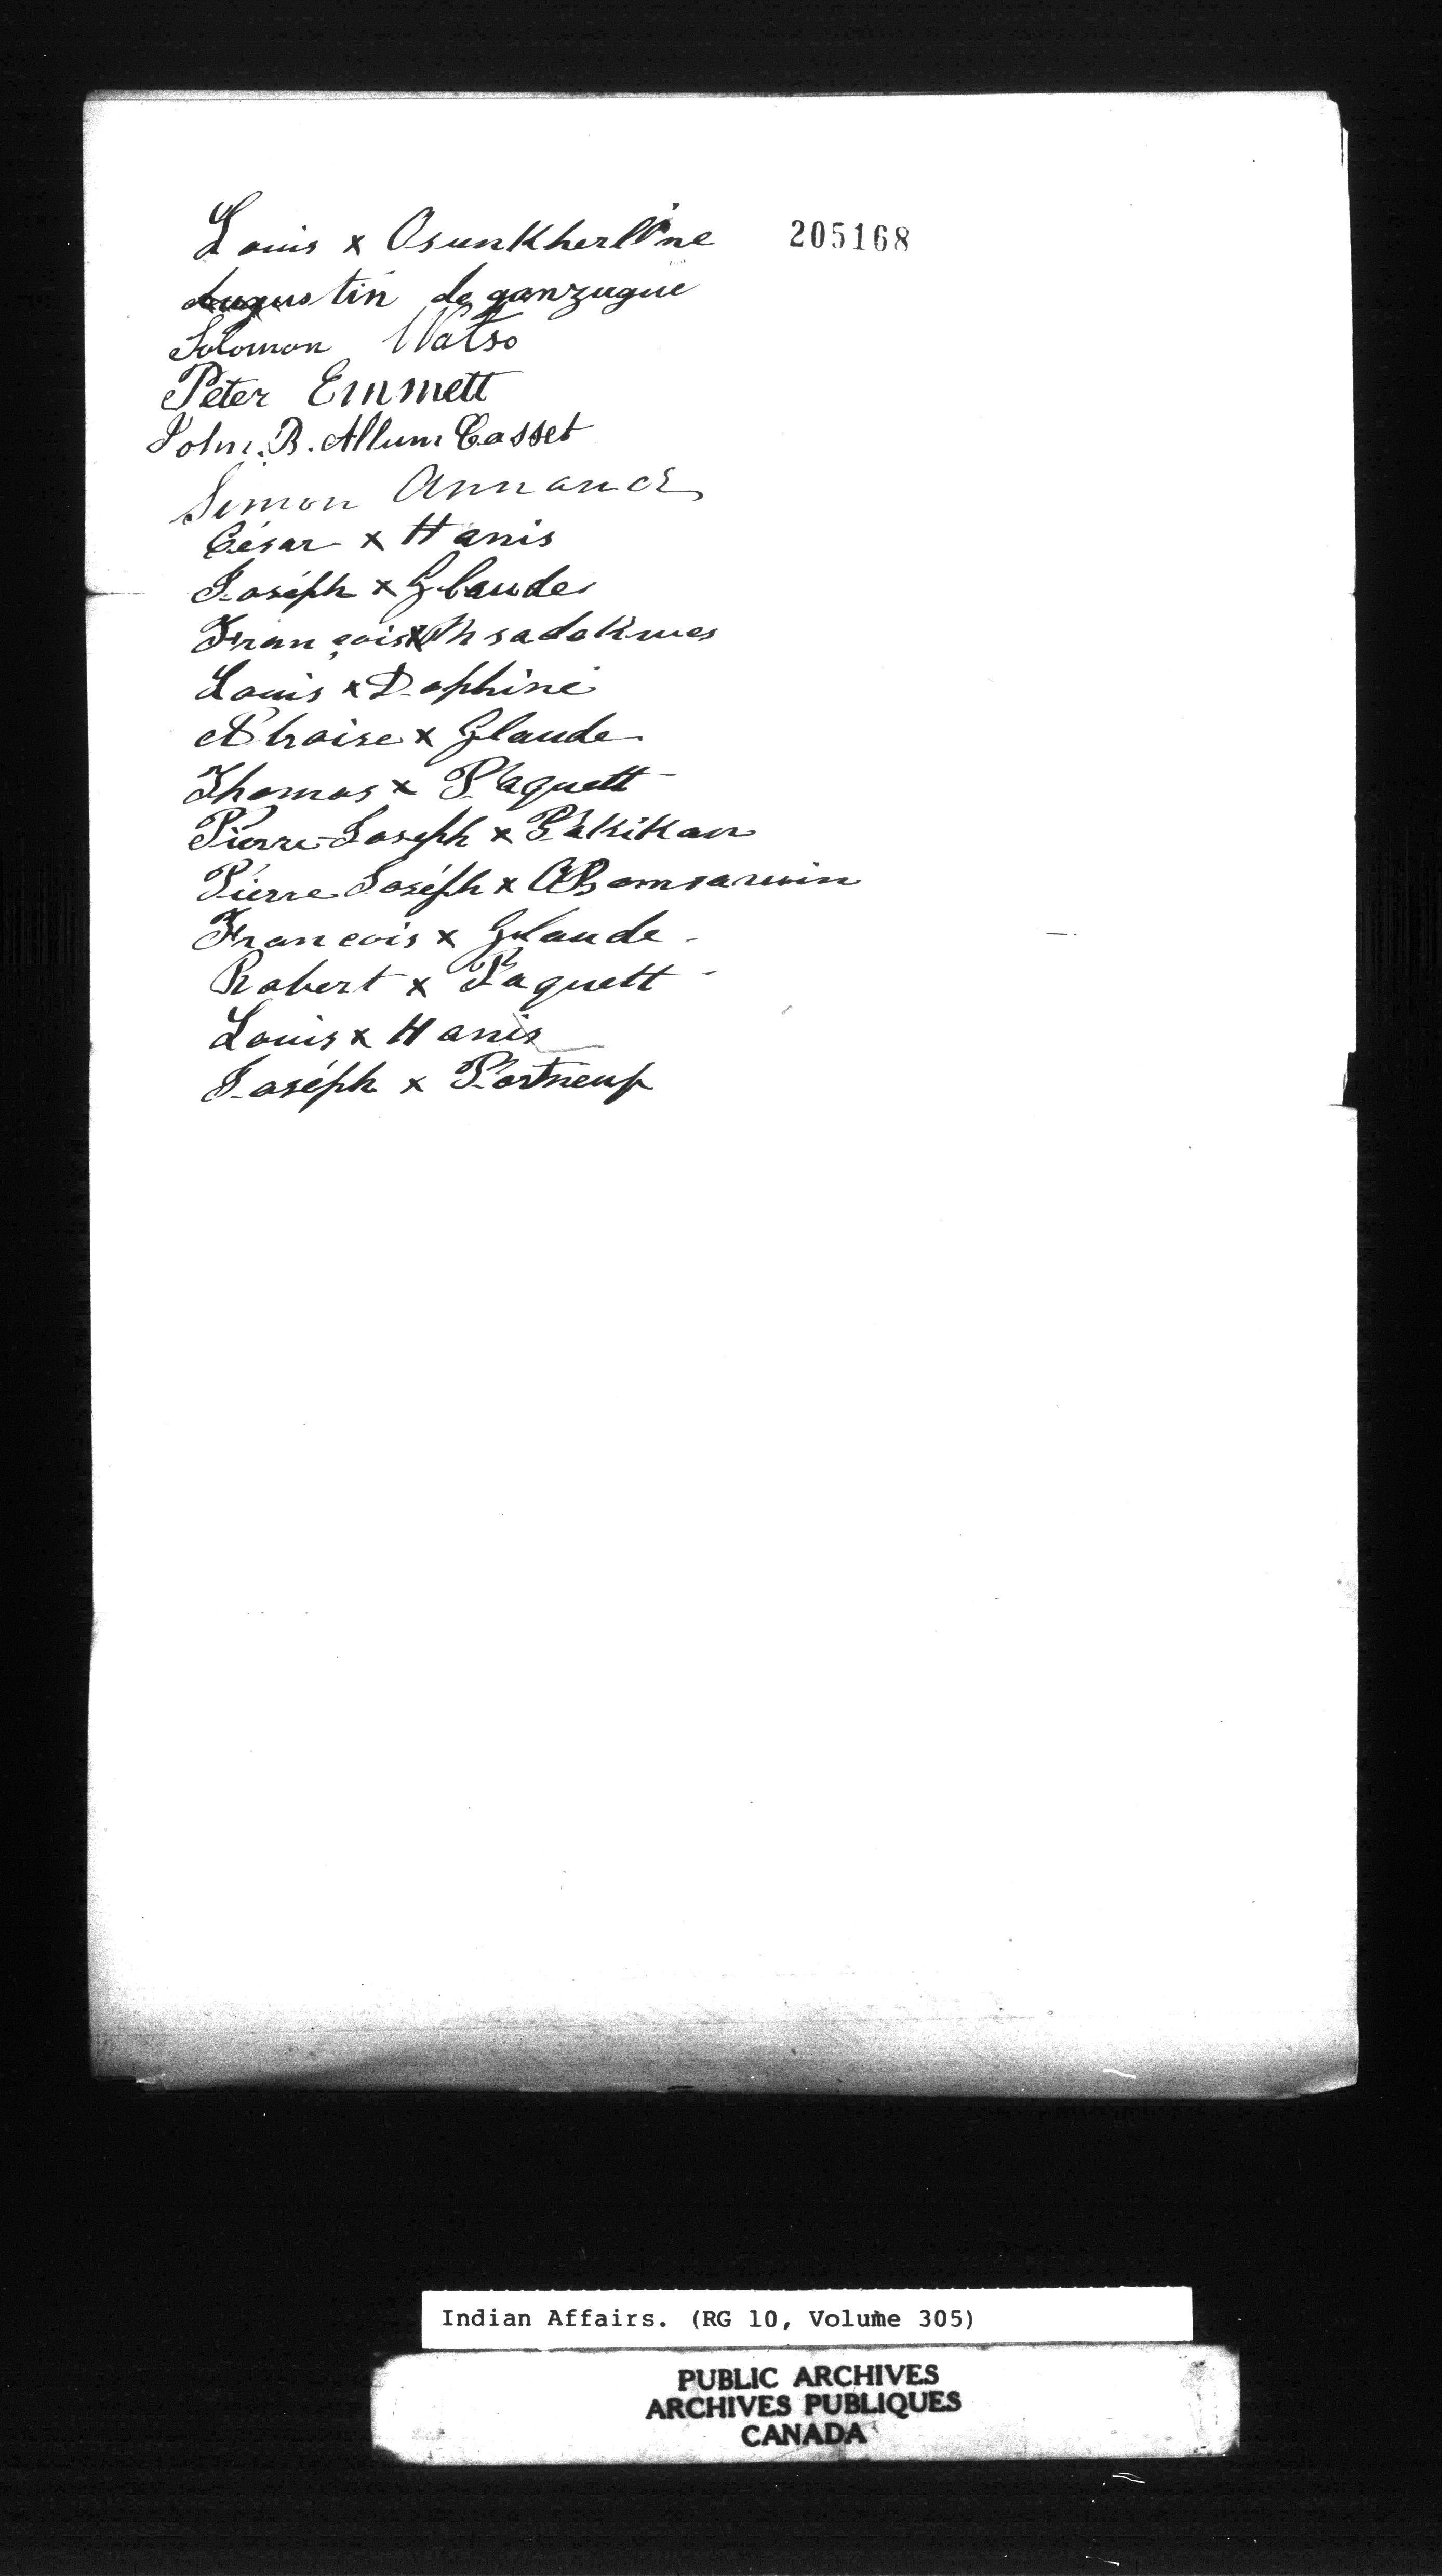 Louis x Osunkherl'ine 205168
Augustin de ganzugue
Solomon Watso
Peter Emmett
John. B. Allum Casset
Simon Annance
César x Hanis
Joséph x Glaude
François x Msadokwes
Louis x Dophine
Abroise x Glaude
Thomas x Paquett
Pierre-Joseph x Pakikan
Pierre Joséph x Obomsawin
Francois x Glaude
Robert x Paquett
Louis x Hanis
Joséph x Portneuf
Indian Affairs. (RG 10, Volume 305)
PUBLIC ARCHIVES
ARCHIVES PUBLIQUES
CANADA